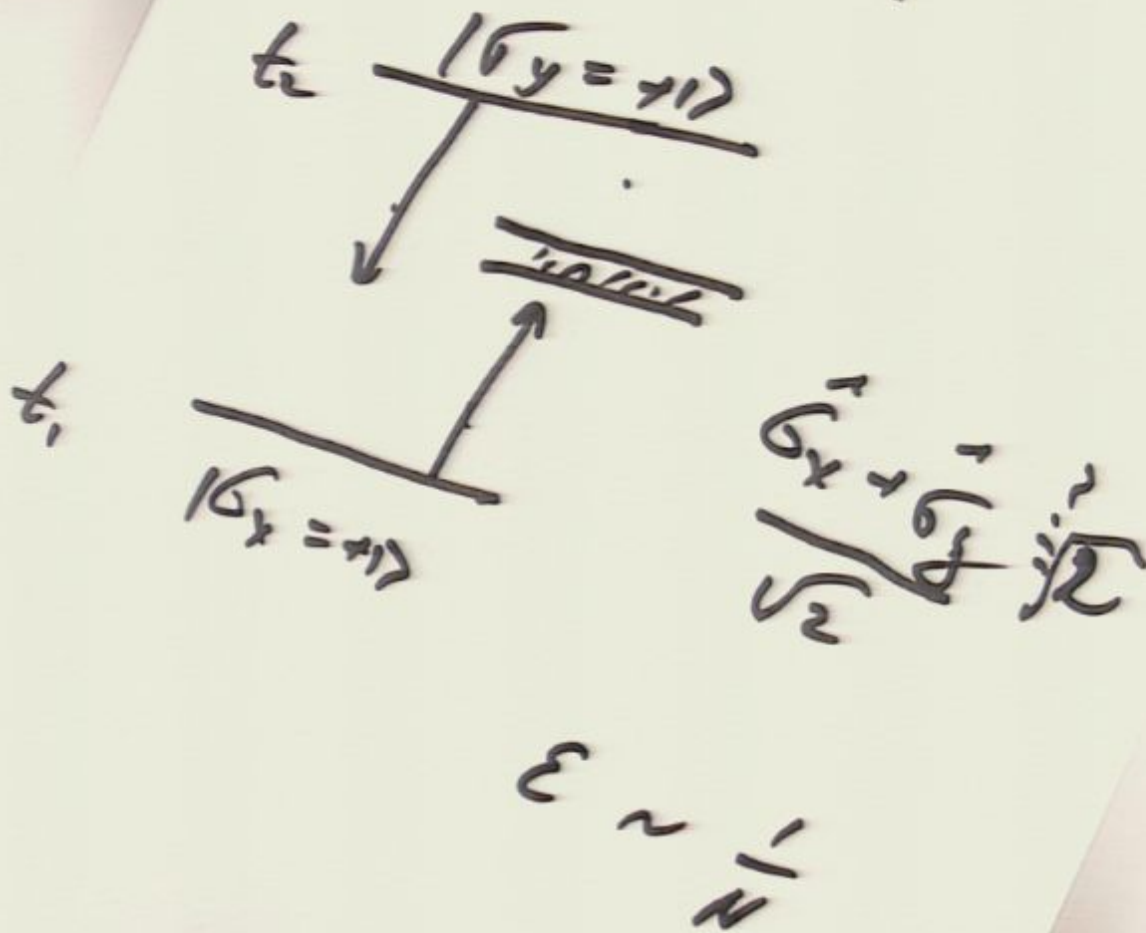 t₂ |σ_y = +1⟩
t₁
|σ_x = +1⟩
(σ⃗_x + σ⃗_y)/√2 = √2
?
ε ~ 1/N